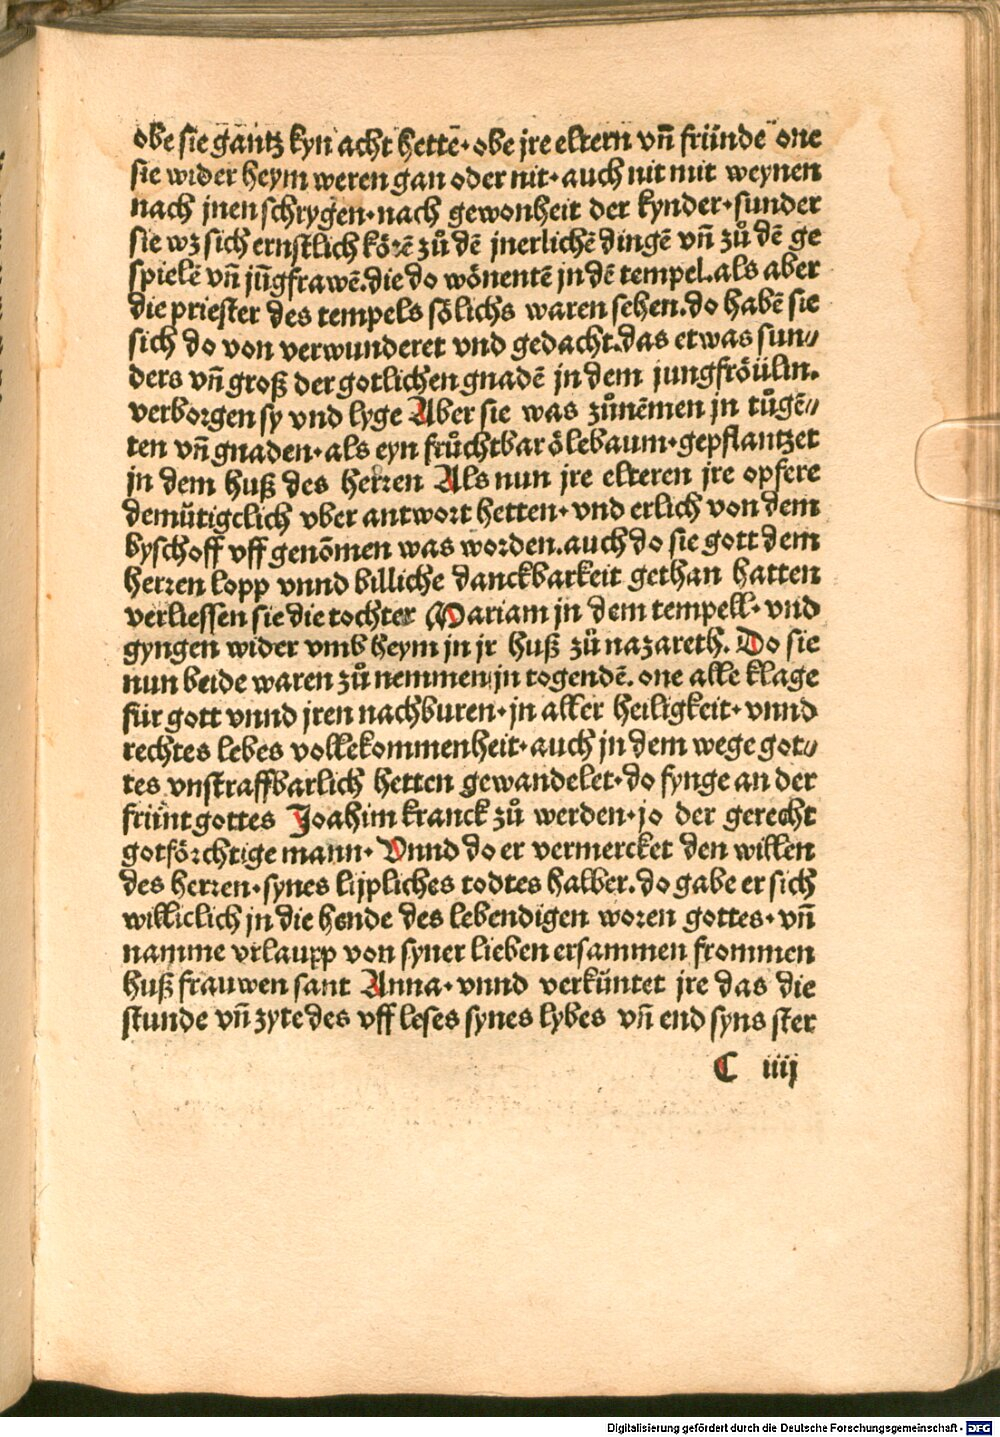 obe sie gantz kyn acht hettē· obe jre eltern vñ fründe one
sie wider heym weren gan oder nit· auch nit mit weynen
nach jnen schrygen· nach gewonheit der kynder· sunder
sie wz sich ernstlich körē zů dē jnerlichē dingē vñ zů dē ge
spielē vñ jūgfrawē.die do wōnentē jn dē tempel.als aber
die priester des tempels sölichs waren sehen.do habē sie
sich do von verwunderet vnd gedacht.das etwas sun⸗
ders vñ groß der gotlichen gnadē jn dem jungfröülin.
verborgen sy vnd lyge Aber sie was zůnēmen jn tůgē⸗
ten vñ gnaden· als eyn frůchtbar ölebaum· gepflantzet
jn dem huß des herren Als nun jre elteren jre opfere
demütigclich vber antwort hetten· vnd erlich von dem
byschoff vff genōmen was worden.auch do sie gott dem
herren lopp vnnd billiche danckbarkeit gethan hatten
verliessen sie die tochter Mariam jn dem tempell· vnd
gyngen wider vmb heym jn jr huß zů nazareth. Do sie
nun beide waren zů nemmen jn togendē. one alle klage
für gott vnnd jren nachburen· jn aller heiligkeit· vnnd
rechtes lebes vollekommenheit· auch jn dem wege got⸗
tes vnstraffbarlich hetten gewandelet· do fynge an der
früntgottes Joahim kranck zů werden· jo der gerecht
gotförchtige mann· Vnnd do er vermercket den willen
des herren· synes lijpliches todtes halber.do gabe er sich
williclich jn die hende des lebendigen woren gottes· vñ
namme vrlaupp von syner lieben ersammen frommen
huß frauwen sant Anna· vnnd verküntet jre das die
stunde vñ zyte des vff leses synes lybes vñ end syns ster
C iiij
Digitalisierung gefördert durch die Deutsche Forschungsgemeinschaft - DFG